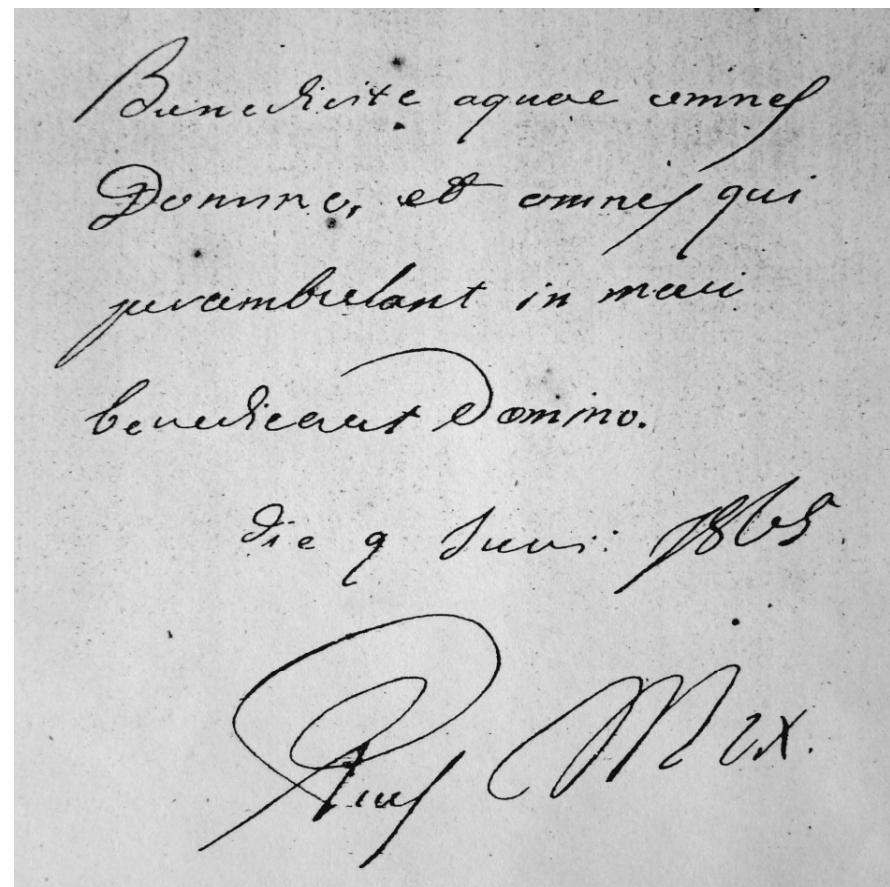 Benedicite aquae omnes
Domino, et omnes qui
perambulant in mari
benedicant Domino.
die 9 Juni: 1865.
Pius